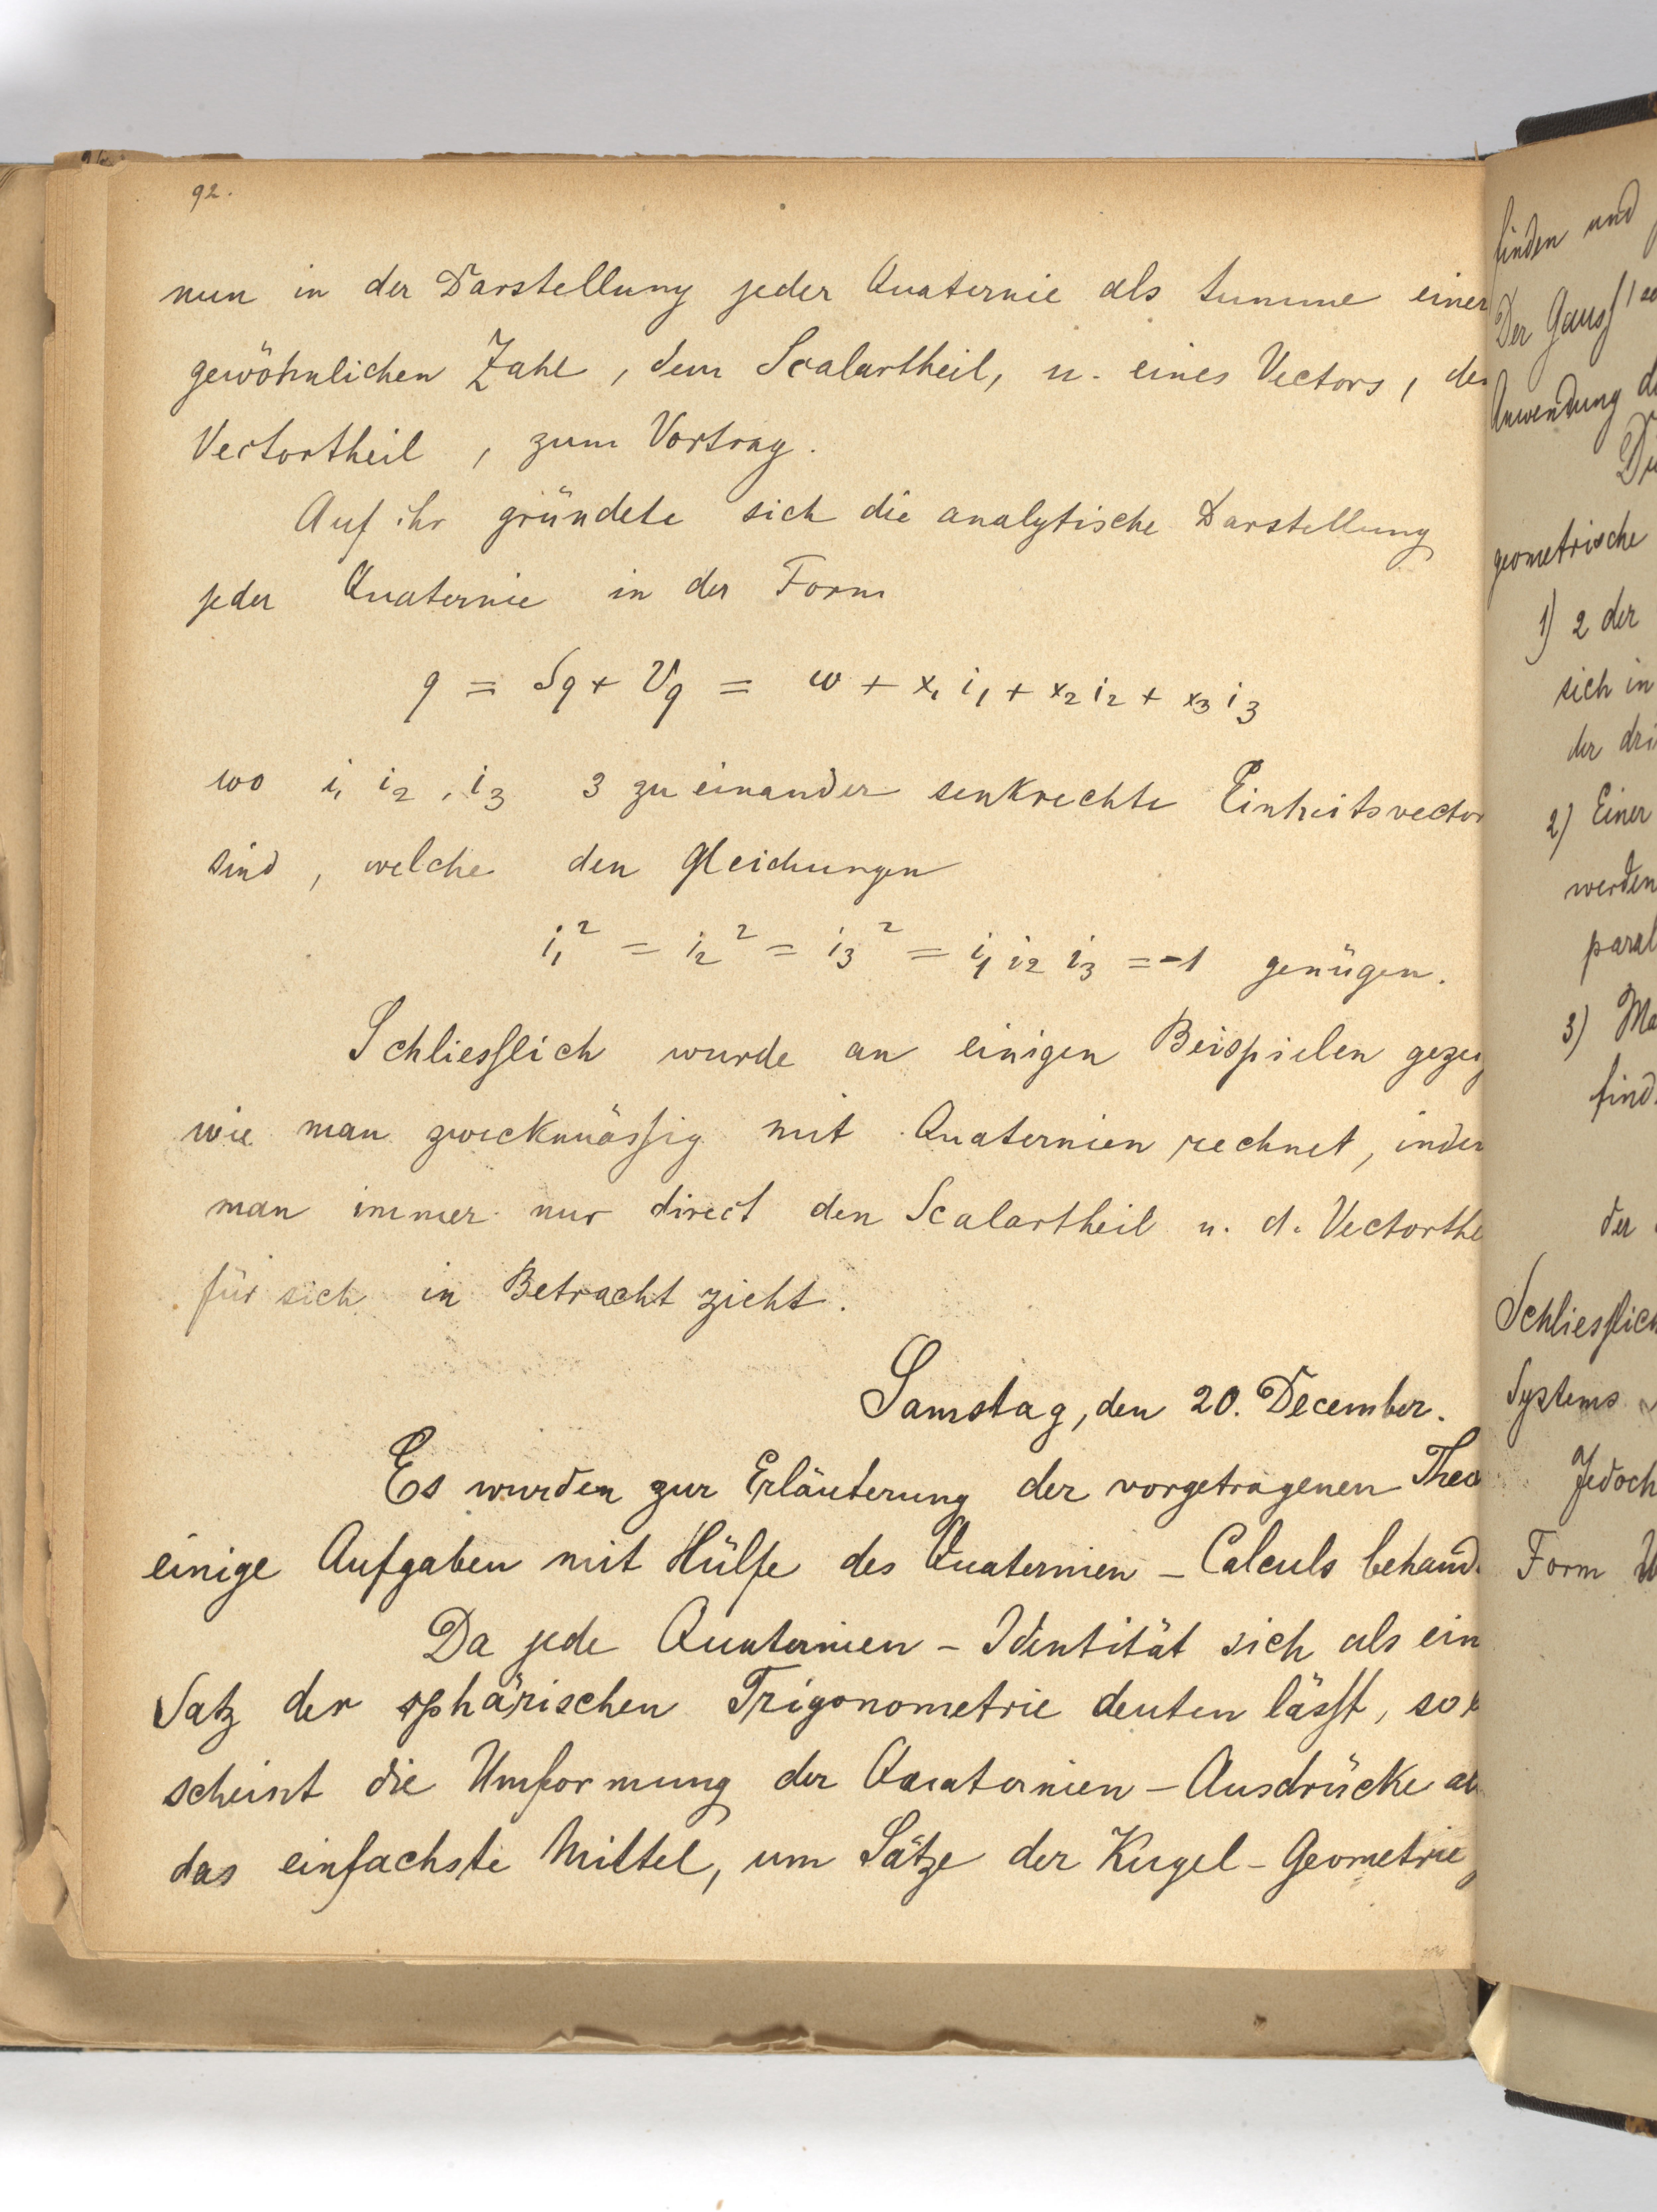 92.
nun in der Darstellung jeder Quaternie als Summe einer
gewöhnlichen Zahl, dem Scalartheil, u. eines Vectors, dem
Vectortheil, zum Vortrag.
Auf ihr gründete sich die analytische Darstellung
jeder Quaternie in der Form
q = Sq + Vq = w + x₁ i₁ + x₂ i₂ + x₃ i₃
wo i₁ i₂, i₃ 3 zu einander senkrechte Einheitsvector
sind, welche den Gleichungen
i₁² = i₂² = i₃² = i₁ i₂ i₃ = -1 genügen.
Schliesslich wurde an einigen Beispielen gezeig
wie man zweckmässig mit Quaternien rechnet, indem
man immer nur direct den Scalartheil u. d. Vectorthe
für sich in Betracht zieht.
Samstag, den 20. December.
Es wurden zur Erläuterung der vorgetragenen Theo
einige Aufgaben mit Hülfe des Quaternien - Calculs behand
Da jede Quaternien - Identität sich als ein
Satz der sphärischen Trigonometrie deuten lässt, so
scheint die Umformung der Quaternien - Ausdrücke al
das einfachste Mittel, um Sätze der Kugel - Geometrie
finden und
Der Gauss'
Anwendung d
geometrische
1) 2 der
sich in
der dri
2) Einer
werden
paral
3) Ma
find
der
Schliesslich
Systems
Jedoch
Form